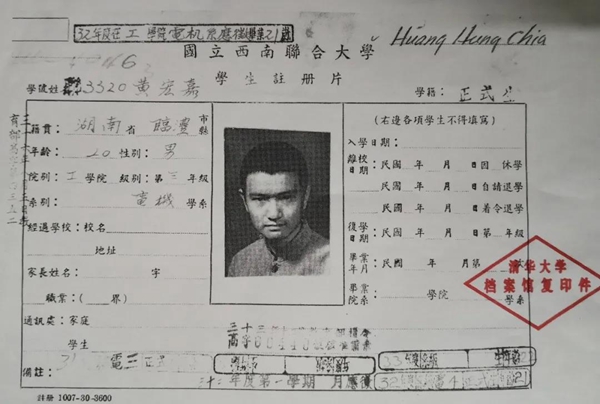 Huang Hung Chia
國立西南聯合大學
學生註冊片
學號姓名 3320 黄宏嘉
學籍：正式生
籍貫：湖南省臨澧市縣
年齡：20 性別：男
院別：工學院 級別：第三年級
系別：電機學系
經過學校：校名
地址
家長姓名： 字
職業：( 界)
通訊處：家庭
學生
備註：
(右邊各項學生不得填寫)
入學日期：
離校日期：民國 年 月 日因 休學
民國 年 月 日自請退學
民國 年 月 日着令退學
復學日期：民國 年 月 日第 年級
畢業年月：民國 年 月第 次
畢業院系： 學院 學系
清华大学
档案馆复印件
註册 1007-30-3600